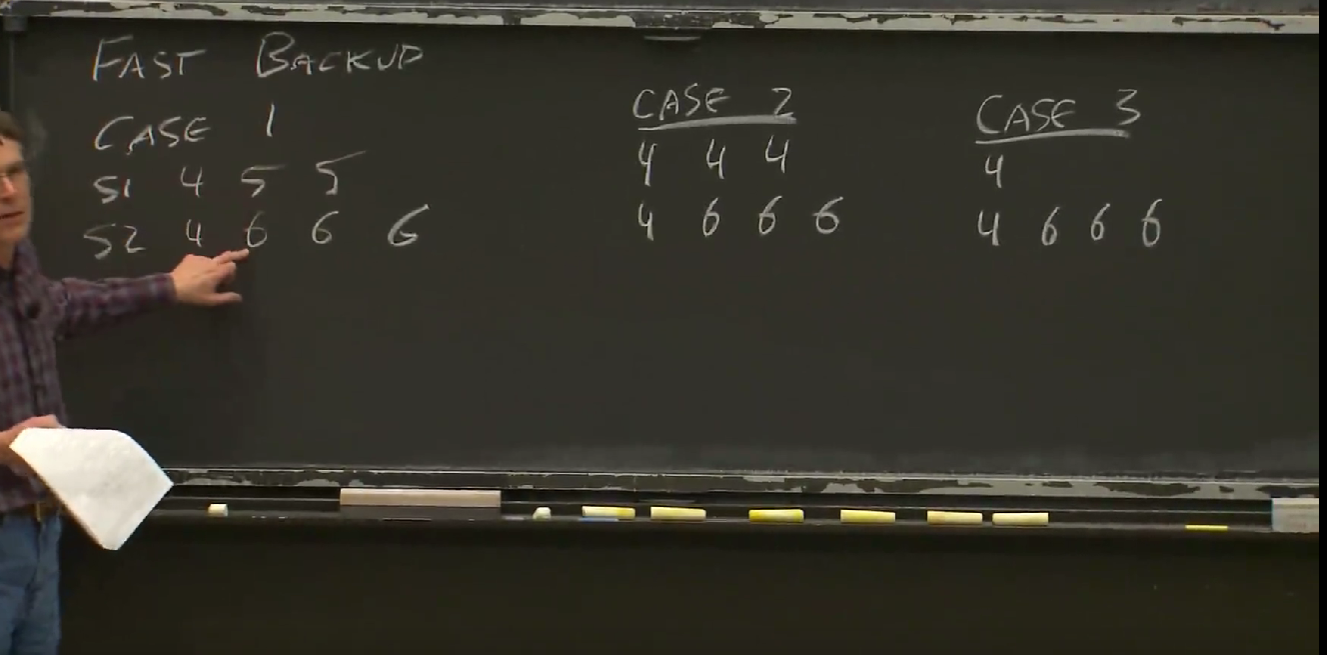 FAST BACKUP
CASE 1
S1 4 5 5
S2 4 6 6 6
CASE 2
4 4 4
4 6 6 6
CASE 3
4
4 6 6 6